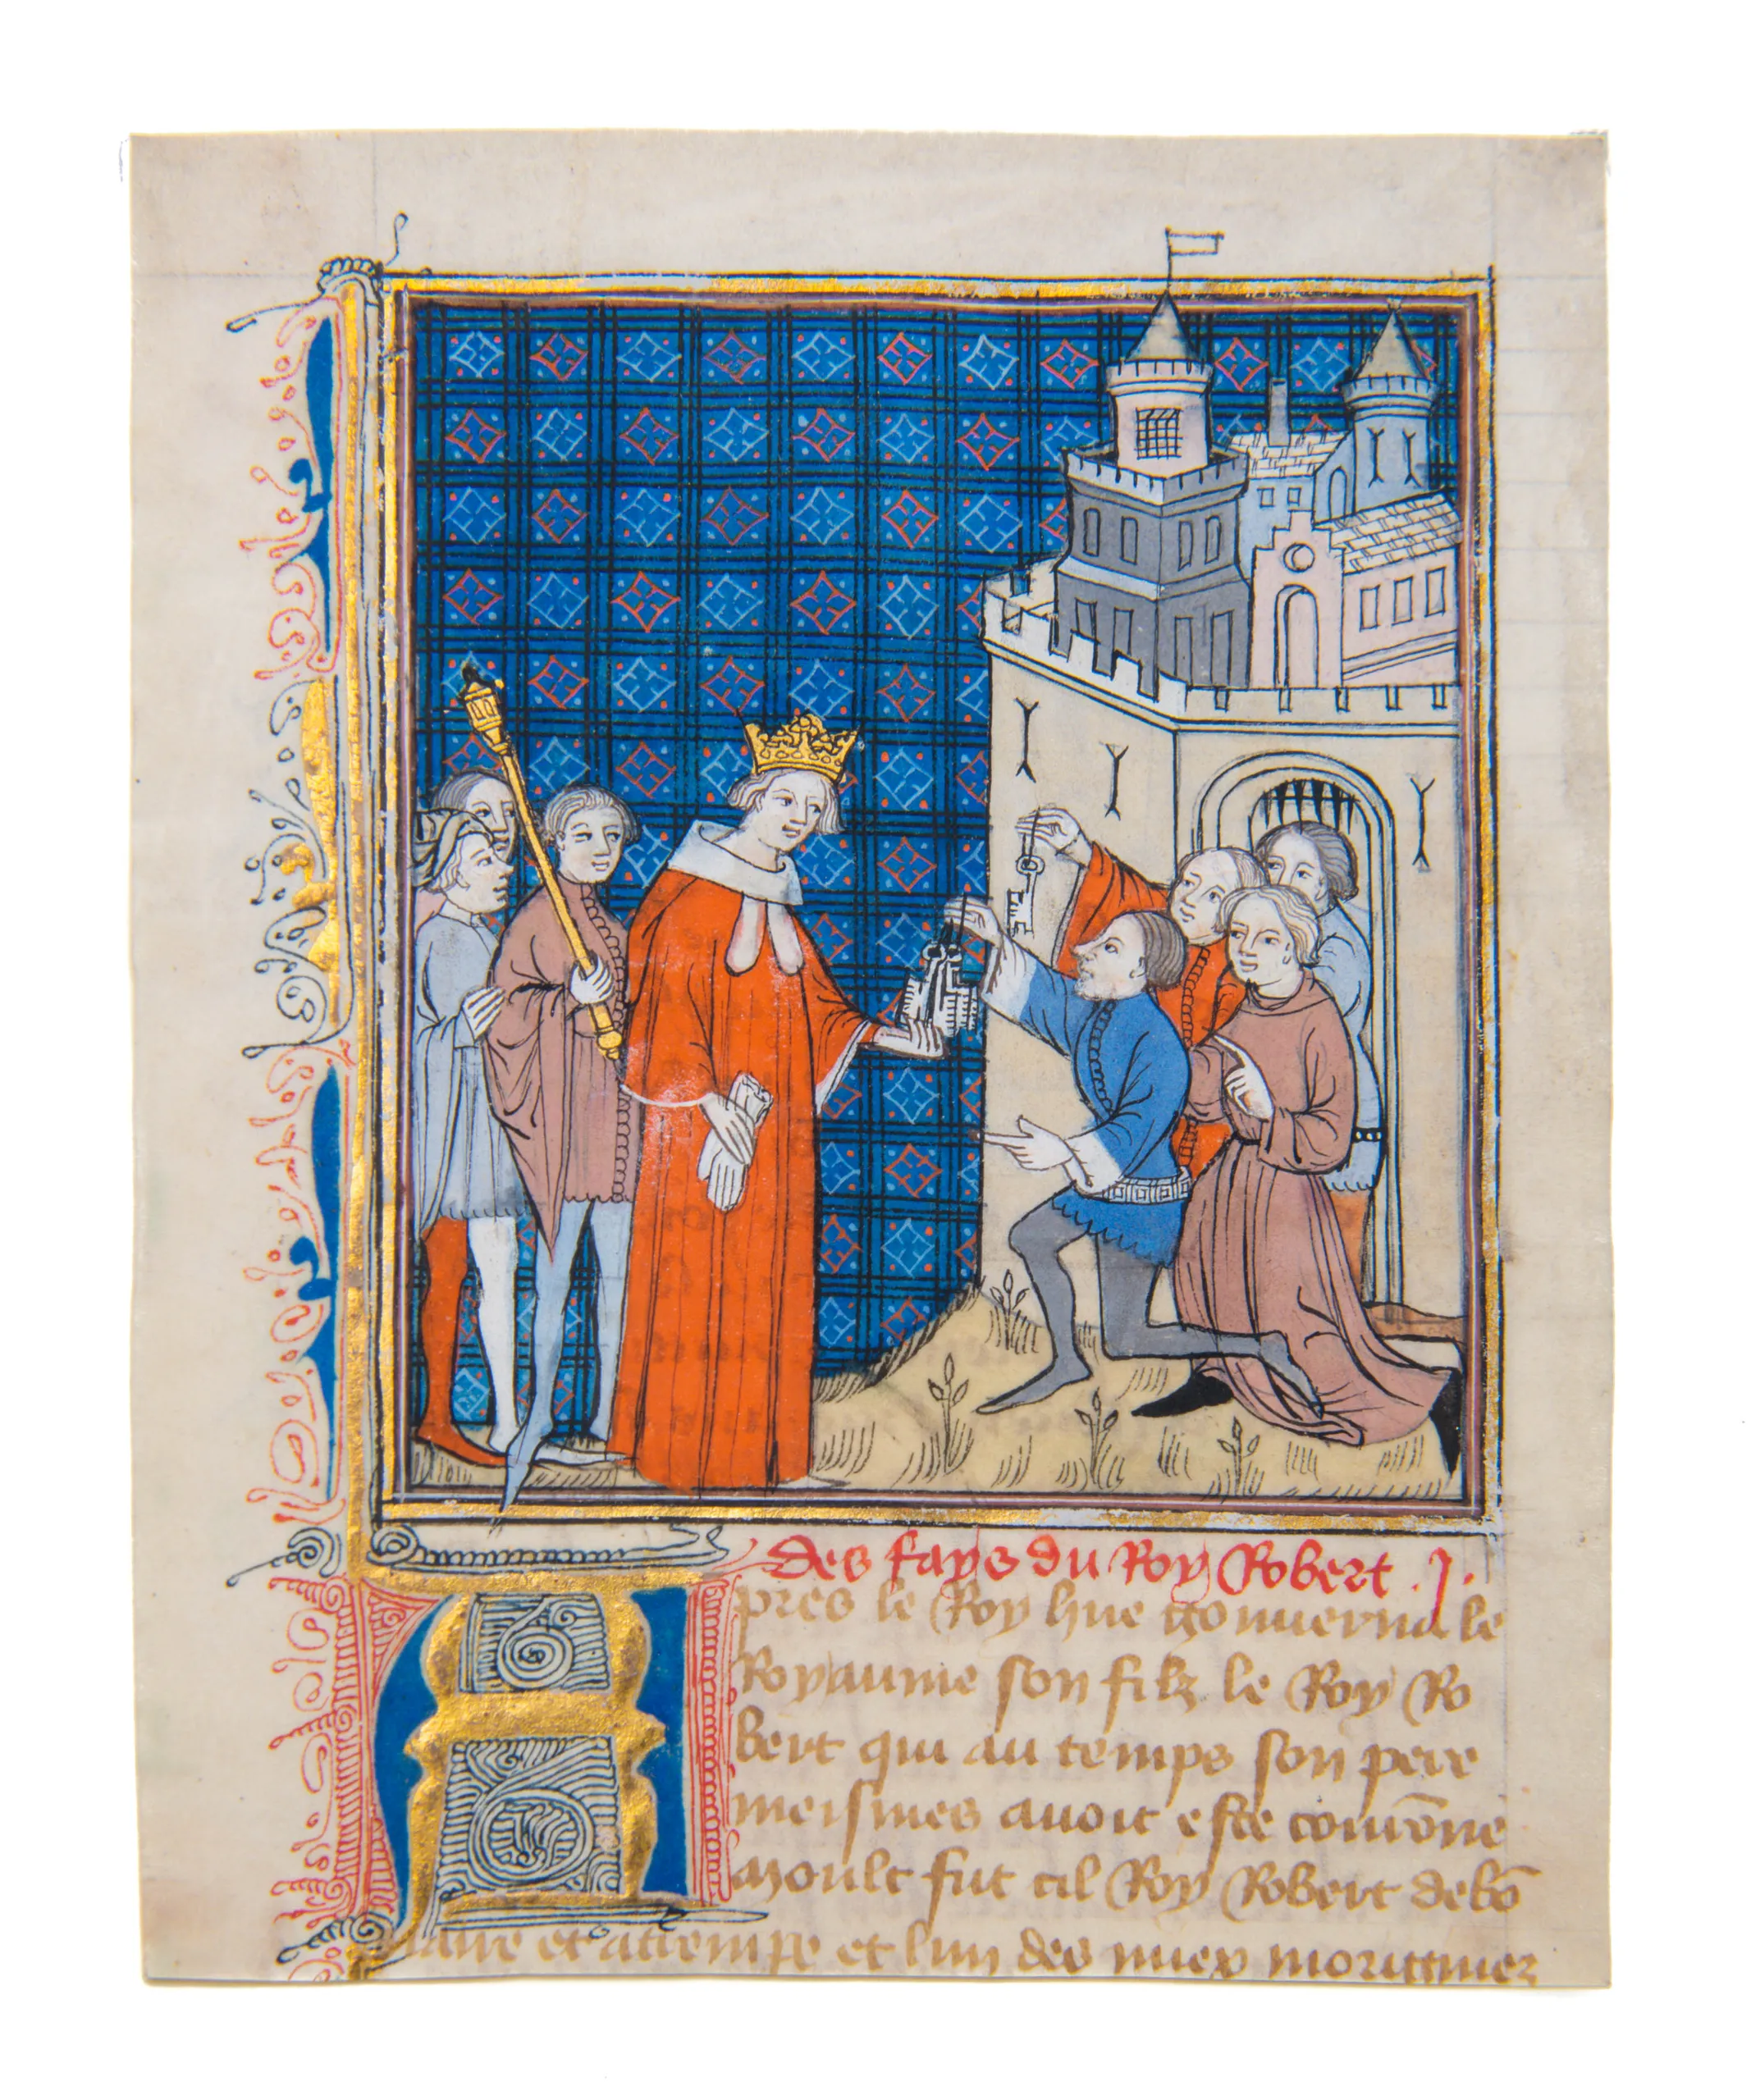 des fays du Roy Robert .j.
Apres le Roy hue gouuerna le
Royaume son filz le Roy Ro
bert qui au temps son pere
meismes auoit este couronne
moult fut cil Roy Robert debō
aire et attempe et lun des miex moriginez